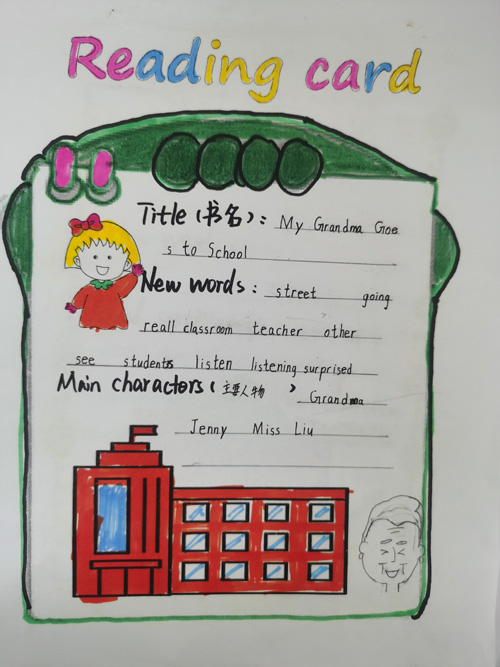 Reading card
Title (书名): My Grandma Goe
s to School
New words: street going
reall classroom teacher other
see students listen listening surprised
Main charactors (主要人物) Grandma
Jenny Miss Liu